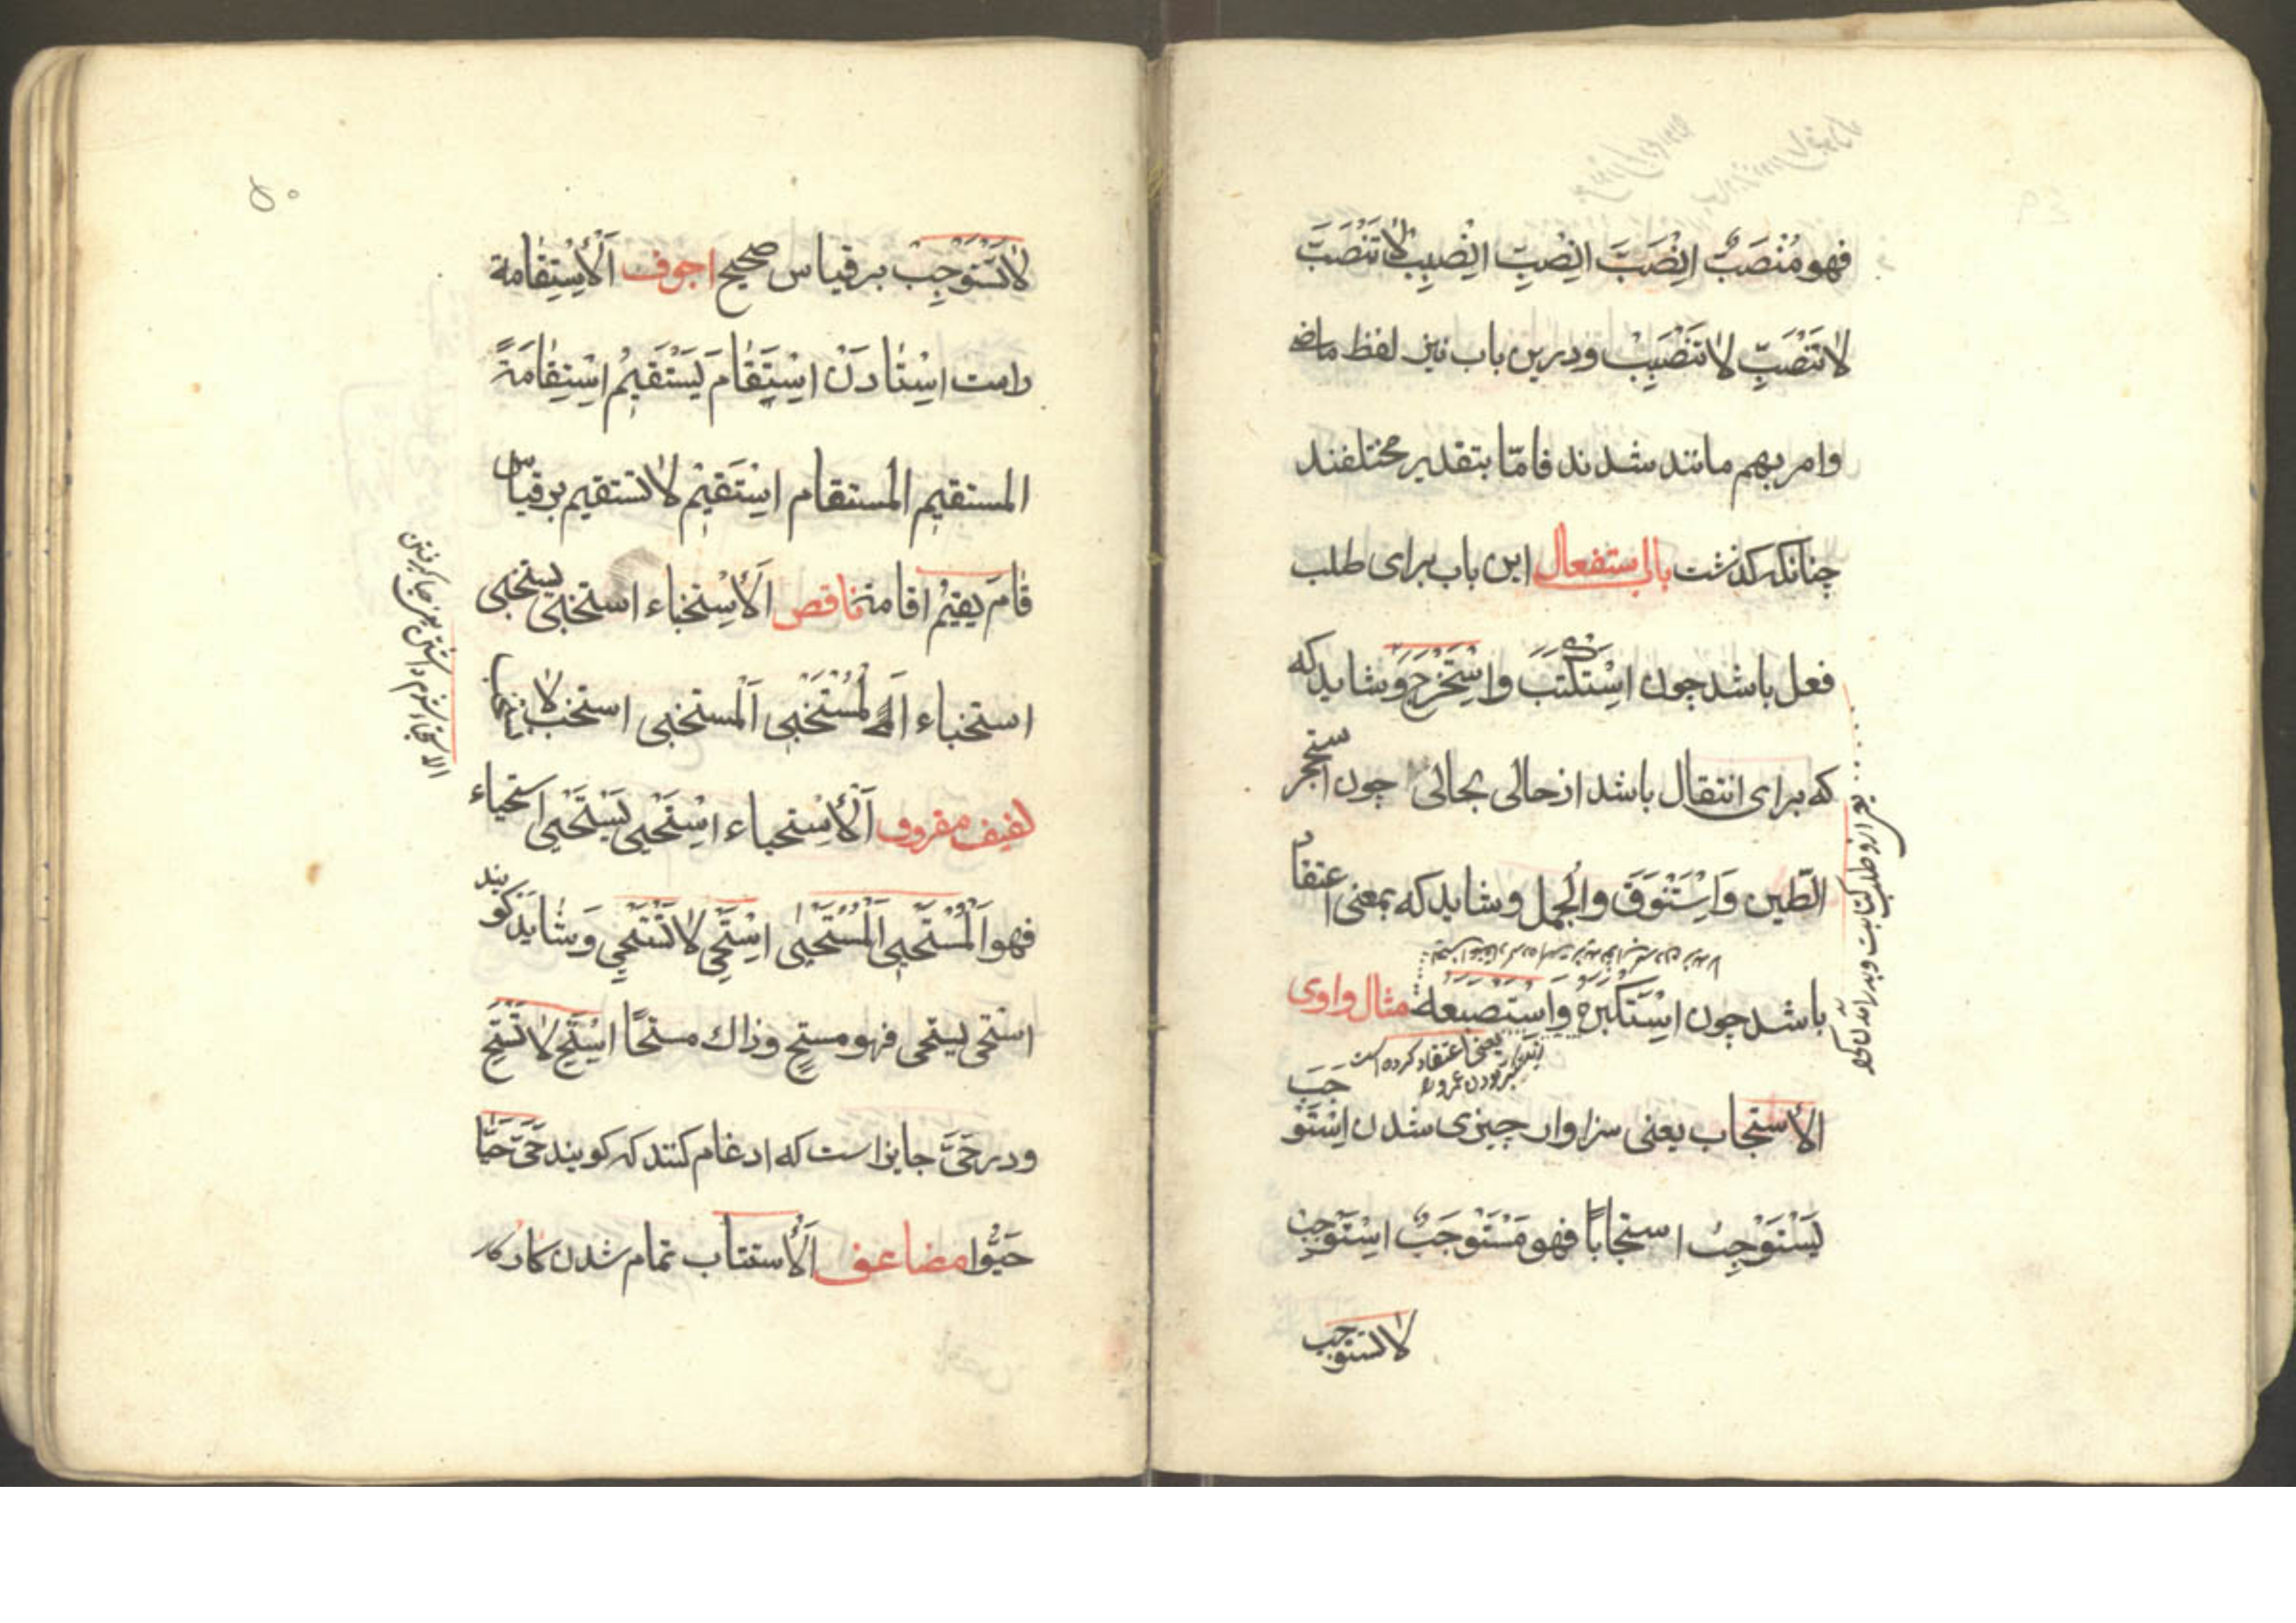 فهو مُنْصَبٌّ اِنْصَبَّ اِنْصَبِّ اِنْصَبِبْ لا تَنْصَبَّ
لا تَنْصَبِّ لا تَنْصَبِبْ و درین باب نیز لفظ ماضی
و امر بهم مانند شدند فامّا بتقدیر مختلفند
چنانکه کذشت باب استفعال این باب برای طلب
فعل باشد چون اِسْتَكْتَبَ و اِسْتَخْرَجَ و شاید که
که برای انتقال باشد از حالی بحالی چون استحجر
الطّین وَ اِسْتَنْوَقَ و الجُمل و شاید که بمعنی اعتقاد
باشد چون اِسْتَكْبَرَهُ وَ اسْتَصْبَعَهُ مثال واوی
یعنی اعتقاد کرده است
الأستجاب یعنی سزاوار چیزی شدن اِسْتَوْجَبَ
یَسْتَوْجِبُ استجابًا فهو مَسْتَوْجَبٌ اِسْتَوْجِبْ
لا تستوجب
۵۰
لا تَسْتَوْجِبْ بر قیاس صحیح اجوف اَلْأِسْتِقامة
راست اِسْتادَنْ اِسْتَقامَ یَسْتَقِیمُ اِسْتِقامَةً
المستقیم المستقام اِسْتَقِیْم لا تستقیم بر قیاس
قامَ یقیْمُ اقامة ناقص اَلْأِسْتِخباء استخبی یستخبی
استخباء اَلْمُسْتَخْبِی اَلْمستخبی استخب لا
لفیف مفروف اَلْأِسْتِحیاء اِسْتَحْیی یَسْتَحْیِی استحیاء
فهو اَلْمُسْتَحْیِی اَلْمُسْتَحْیٰی اِسْتَحْیِ لا تَسْتَحْیِ وَ شایَد کویند
استحی یستحی فهو مستحٍ و ذاك مستحًا اِسْتَحِ لا تَسْتَحِ
و در حَیِیَ جایز است که ادغام کنند که کویند حَیَّ حَیَّا
حَیُّوا مضاعف اَلْأِستتاب تمام شدن کار کار